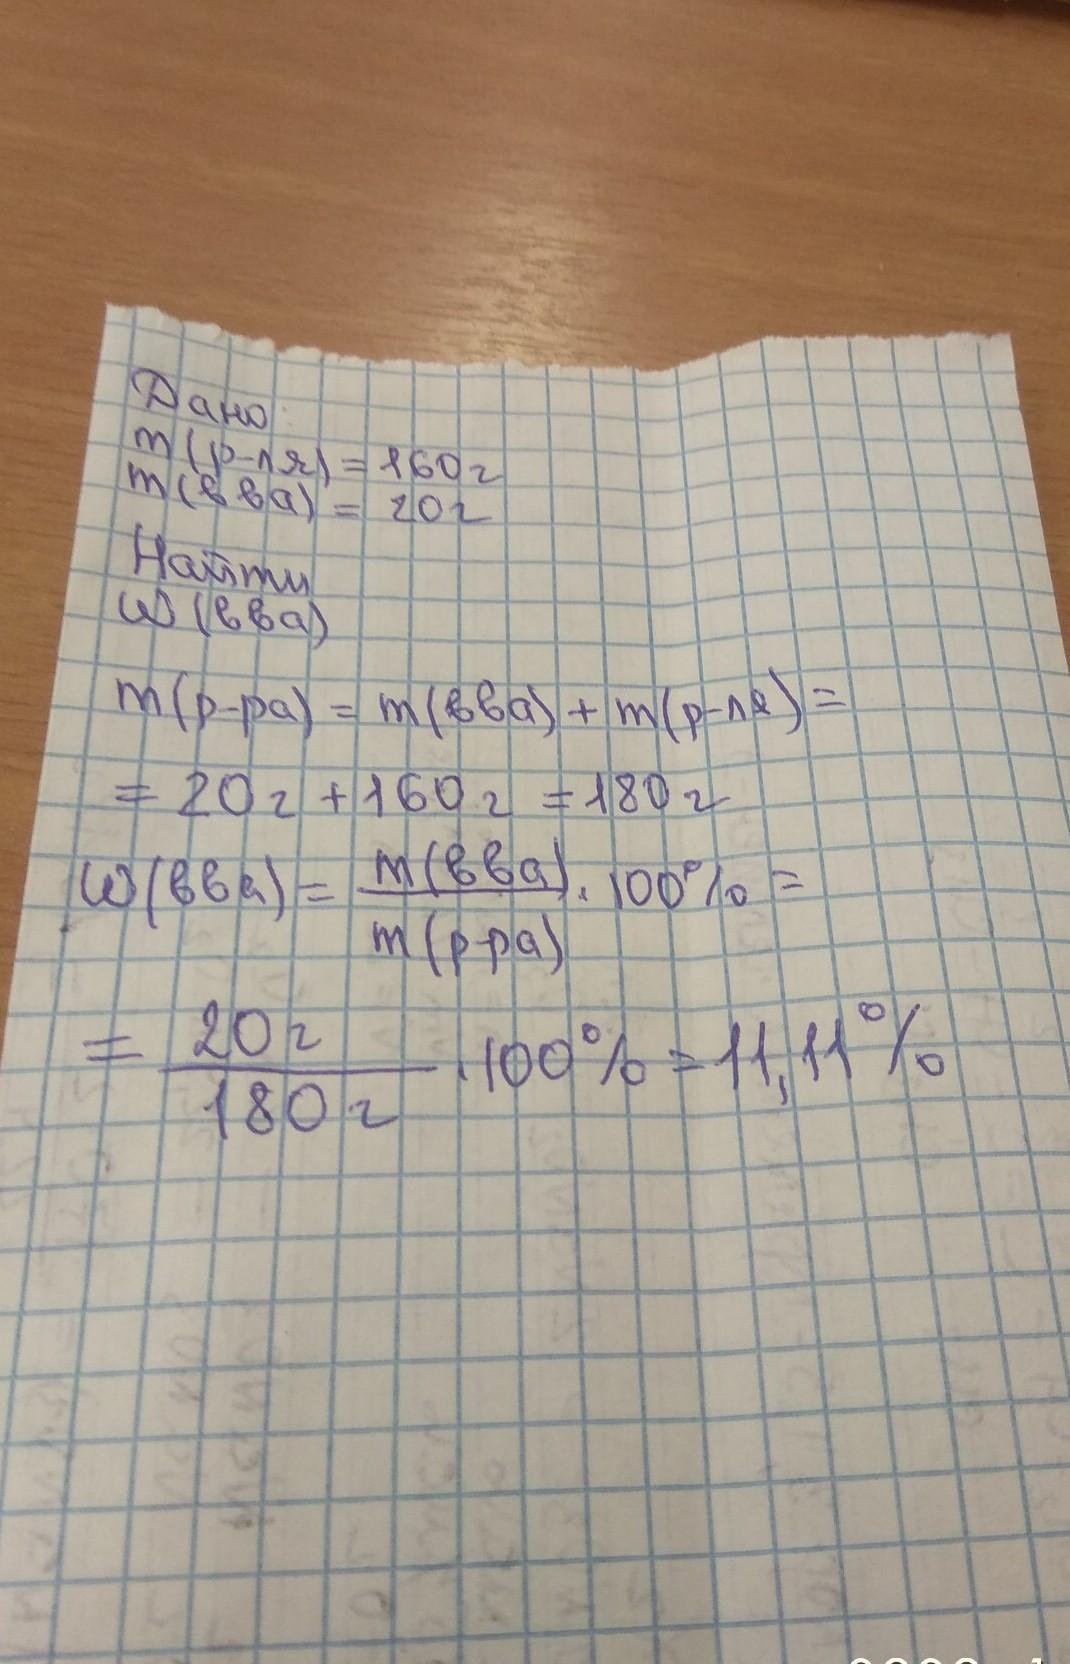 Дано:
m(р-ля) = 160г
m(вва) = 20г
Найти
W(вва)
m(р-ра) = m(вва) + m(р-ля) =
= 20г + 160г = 180г
W(вва) = m(вва) / m(р-ра) · 100% =
= 20г / 180г · 100% = 11,11%